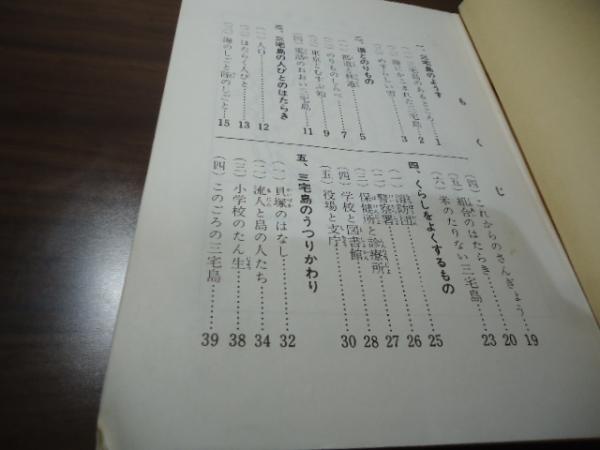 もくじ
一、三宅島のようす
(一) 三宅島のあるところ 1
(二) 海にかこまれた三宅島 2
(三) めずらしい雪 3
二、道とのりもの
(一) 都道と林道 5
(二) のりものしらべ 7
(三) 東京とむすぶ船 9
(四) 電話のおおい三宅島 11
三、三宅島の人びとのはたらき
(一) 人口 12
(二) はたらく人びと 13
(三) 海のしごと陸のしごと 15
(四) これからのさんぎょう 19
(五) 組合のはたらき 20
(六) 米のたりない三宅島 23
四、くらしをよくするもの 25
(一) 消防団 26
(二) 警察署 27
(三) 保健所と診療所 28
(四) 学校と図書館 30
(五) 役場と支庁
五、三宅島のうつりかわり
(一) 貝塚のはなし 32
(二) 流人と島の人たち 34
(三) 小学校のたん生 38
(四) このごろの三宅島 39